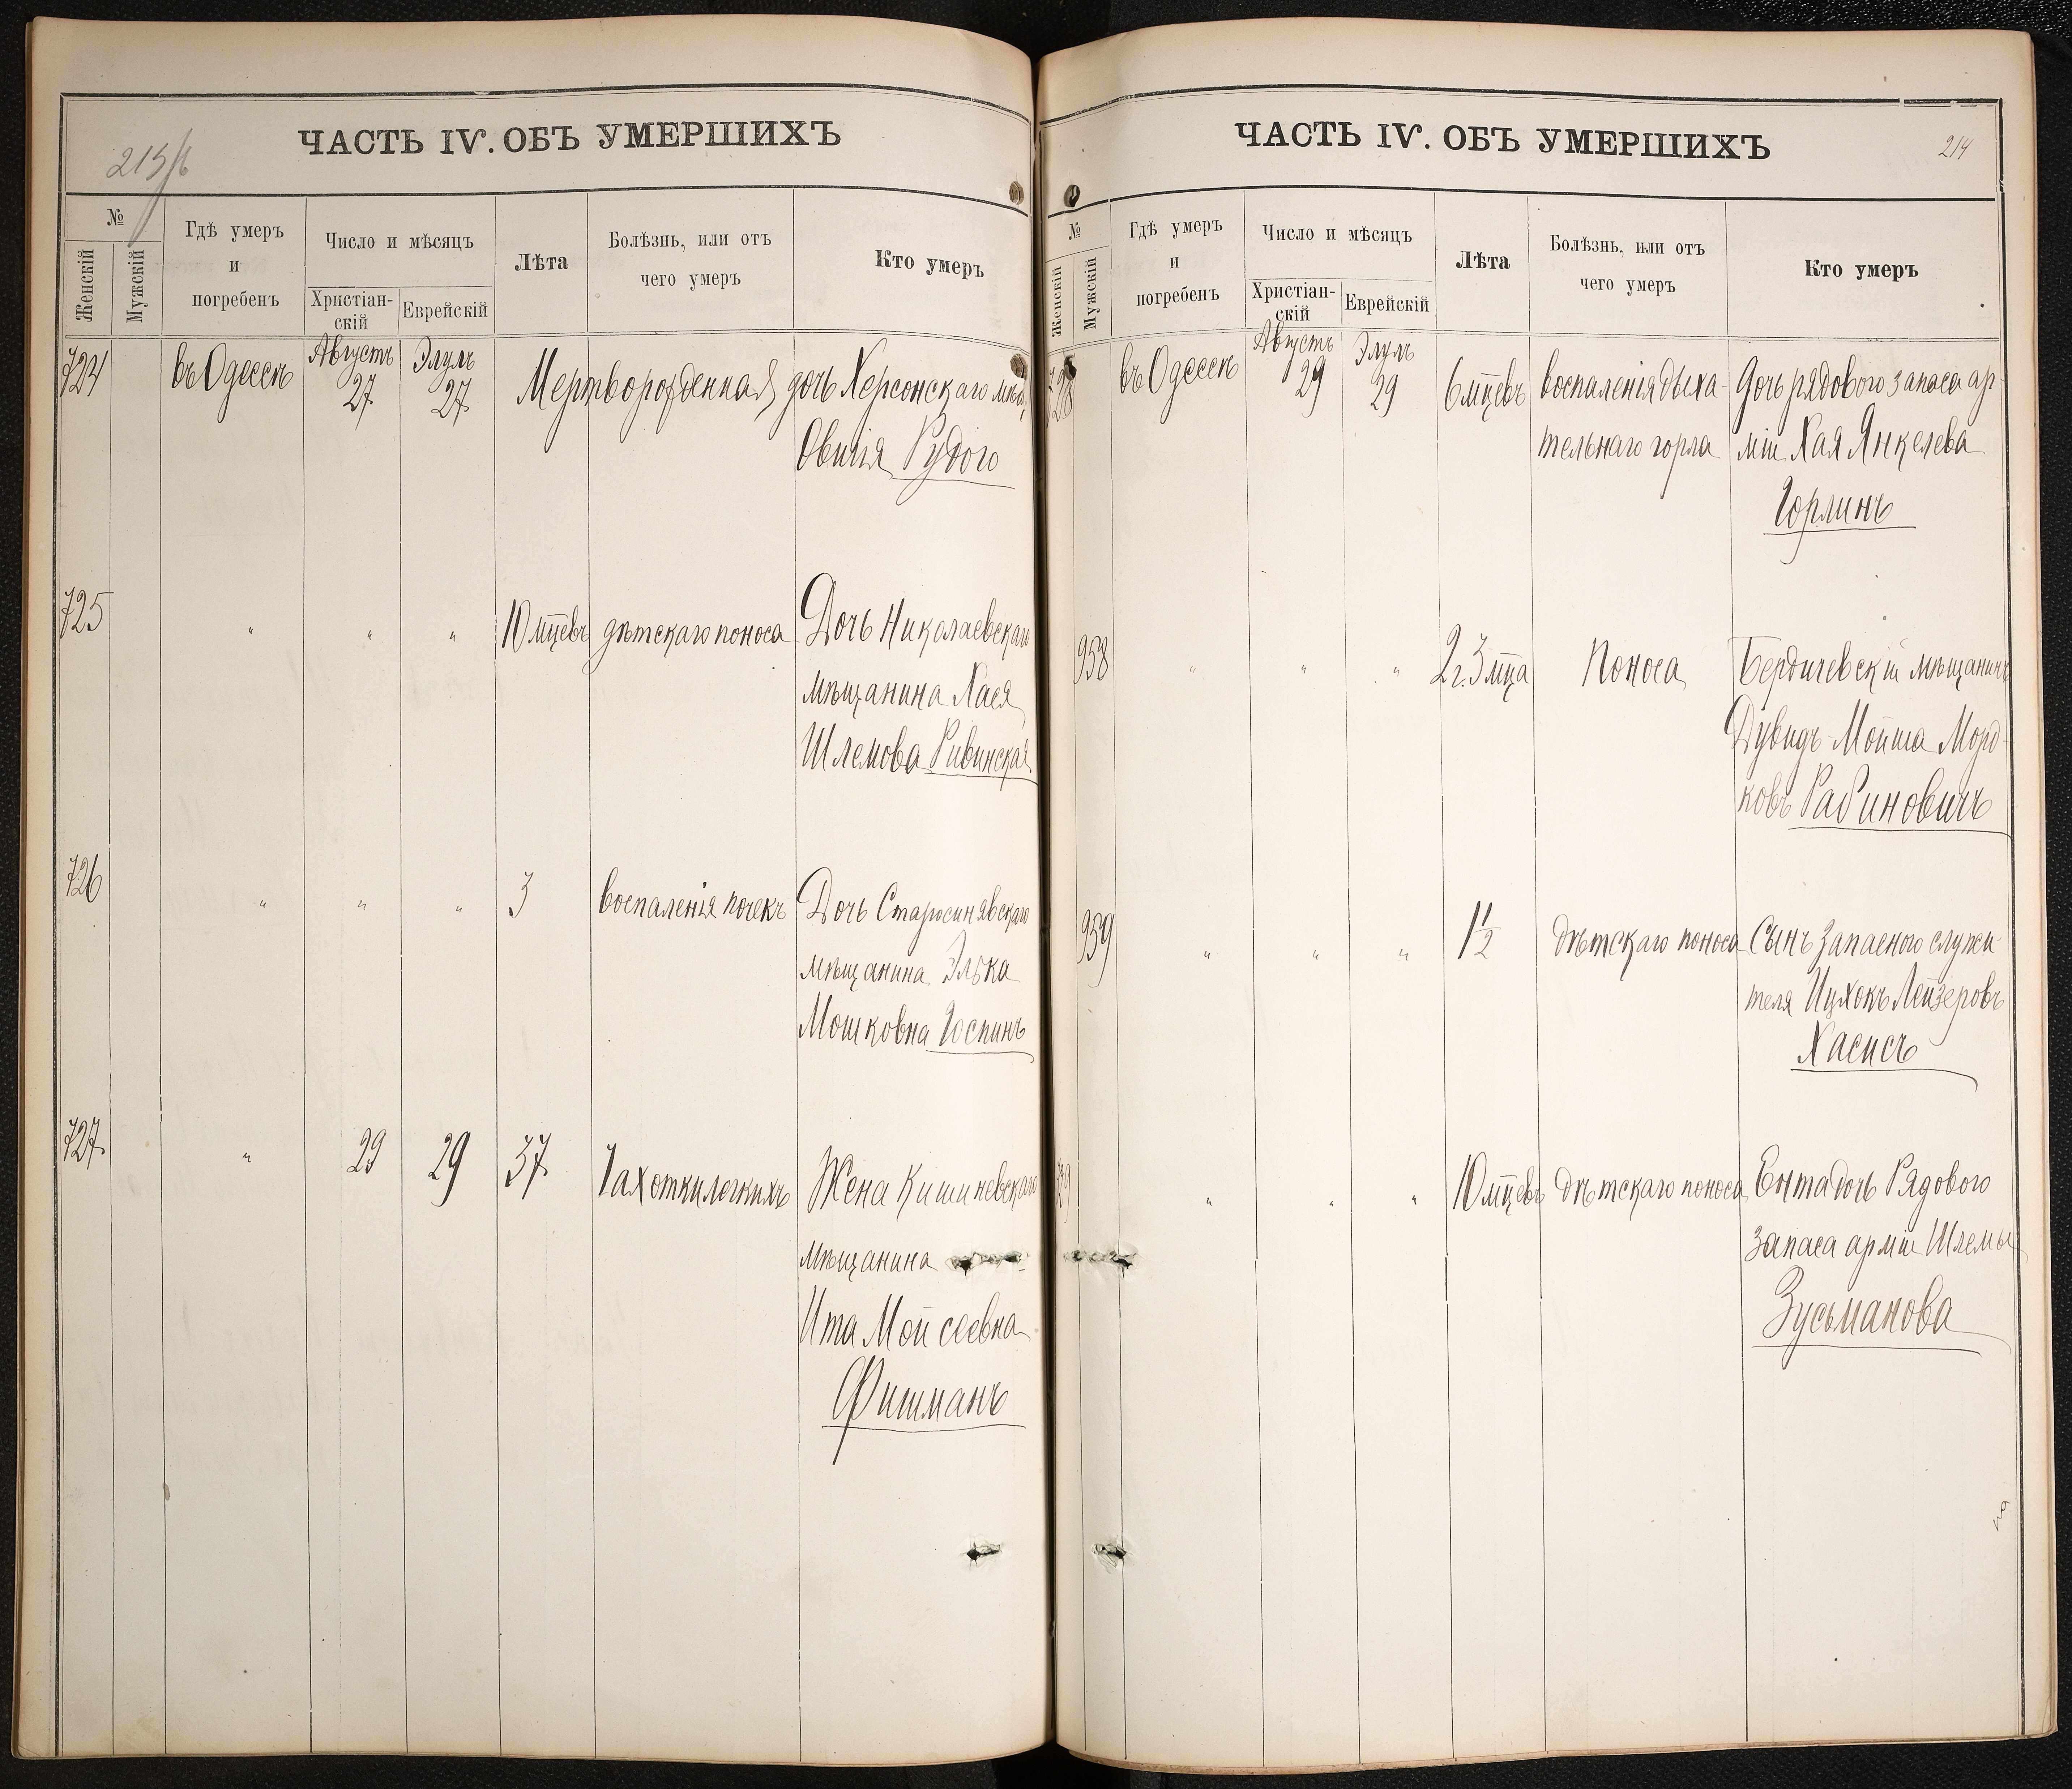 ЧАСТЬ IV. ОБЪ УМЕРШИХЪ
№
Женскій
Мужскій
Гдѣ умеръ
и
погребенъ
Число и мѣсяцъ
Христіан-
скій
Еврейскій
Лѣта
Болѣзнь, или отъ
чего умеръ
Кто умеръ
724 въ Одессѣ Августъ 27 Элулъ 27 Мертворожденная дочь Херсонскаго мѣщ.
Овшія Рудого
725 " " " 10 мцевъ дѣтскаго поноса Дочь Николаевскаго
мѣщанина Хася
Шлемова Ривинская
726 " " " 3 воспаленія почекъ Дочь Старосинявскаго
мѣщанина Элька
Мошковна Госпинъ
727 " 29 29 37 Чахотки легкихъ Жена Кишиневскаго
мѣщанина
Ита Мойсеевна
Фишманъ
ЧАСТЬ IV. ОБЪ УМЕРШИХЪ
214
№
Женскій
Мужскій
Гдѣ умеръ
и
погребенъ
Число и мѣсяцъ
Христіан-
скій
Еврейскій
Лѣта
Болѣзнь, или отъ
чего умеръ
Кто умеръ
728 въ Одессѣ Августъ 29 Элулъ 29 6 мцевъ воспаленія дыха- Дочь рядового запаса ар-
тельнаго горла міи Хая Янкелева
Горлинъ
958 " " " 2 г. 3 мца Поноса Бердичевскій мѣщанинъ
Дувидъ-Мойша Морд-
ковъ Рабиновичъ
959 " " " 1 1/2 дѣтскаго поноса Сынъ запасного служи-
теля Ицхокъ Лейзеровъ
Хасисъ
729 " " " 10 мцевъ дѣтскаго поноса Ента дочь Рядового
запаса арміи Шлемы
Зусьманова